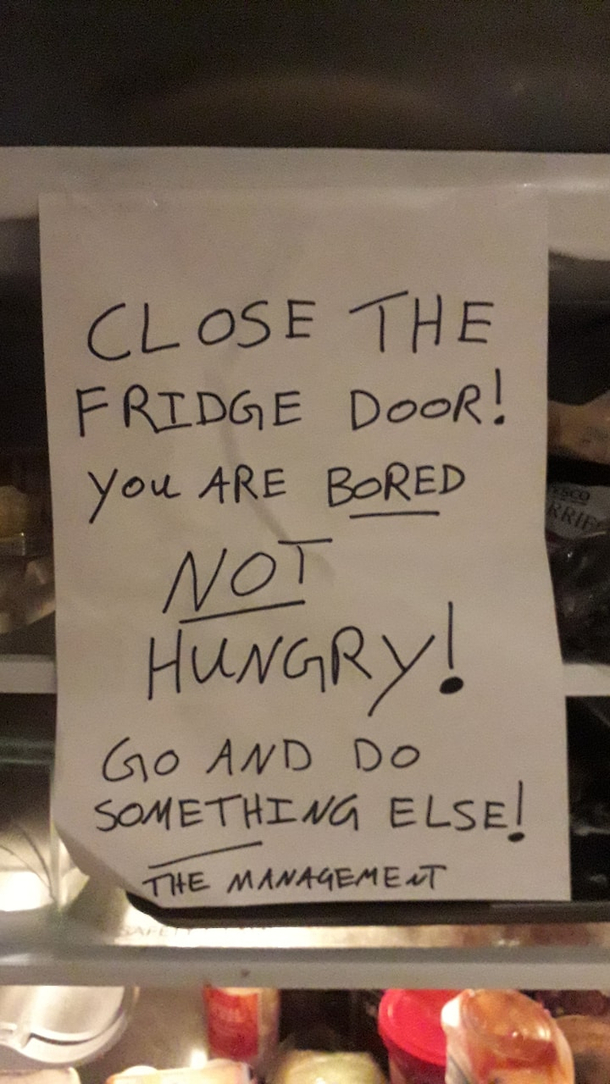 CLOSE THE
FRIDGE DOOR!
You ARE BORED
NOT
HUNGRY!
GO AND DO
SOMETHING ELSE!
THE MANAGEMENT
SAFETY